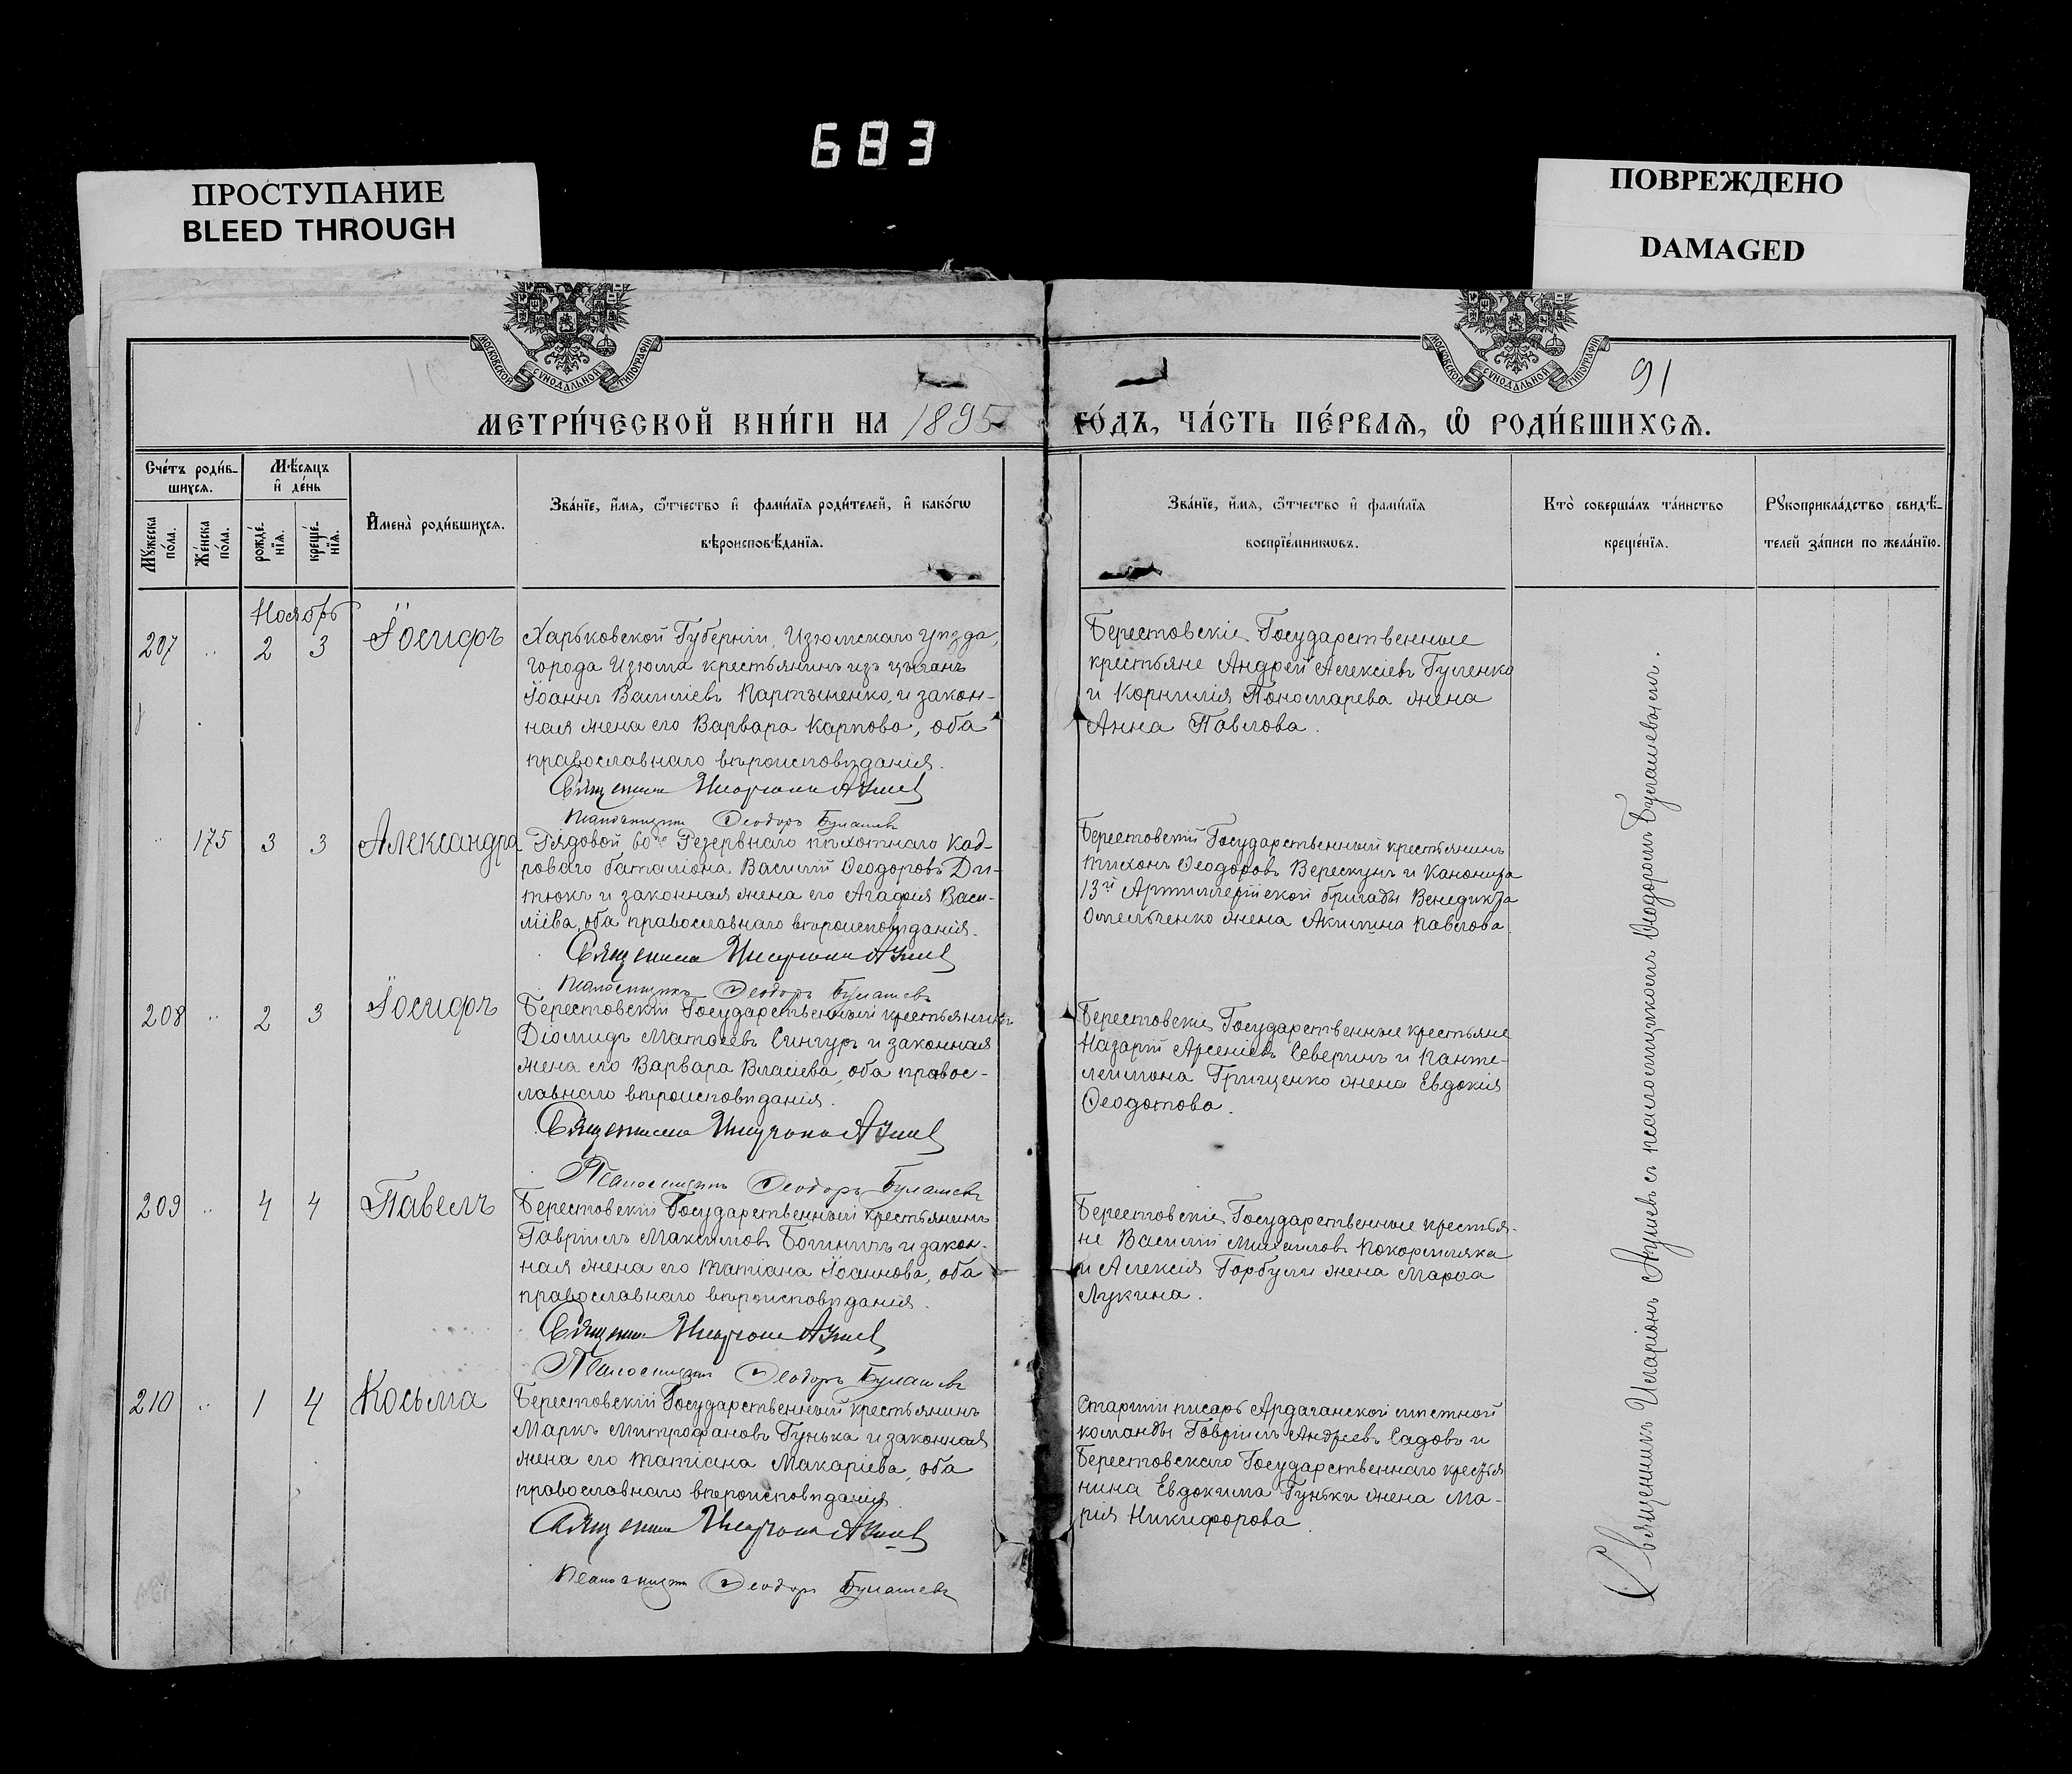 683
ПРОСТУПАНИЕ
BLEED THROUGH
ПОВРЕЖДЕНО
DAMAGED
МОСКОВСКОЙ СѴНОДАЛЬНОЙ ТИПОГРАФІИ
МОСКОВСКОЙ СѴНОДАЛЬНОЙ ТИПОГРАФІИ
91
МЕТРИ́ЧЕСКОЙ КНИ́ГИ НА 1895 ГО́ДЪ, ЧА́СТЬ ПЕ́РВАѦ, Ѽ РОДИ́ВШИХСѦ.
Сче́тъ роди́в-
шихсѧ.
Мꙋ́жеска
по́ла.
Же́нска
по́ла.
Мѣ́сѧцъ
и҆ де́нь
рожде́-
нїѧ.
креще́-
нїѧ.
И҆мена̀ роди́вшихсѧ.
Зва́нїе, и҆́мѧ, ѻ҆́тчество и҆ фами́лїѧ роди́телей, и҆ како́гѡ
вѣроисповѣ́данїѧ.
Зва́нїе, и҆́мѧ, ѻ҆́тчество и҆ фами́лїѧ
воспрїе́мникѡвъ.
Кто̀ соверша́лъ та́инство
креще́нїѧ.
Рꙋкоприкла́дство свидѣ́-
телей за́писи по жела́нїю.
Ноябрь
207 „ 2 3 Іосифъ
Харьковской Губерніи, Изюмскаго уѣзда,
города Изюма крестьянинъ изъ цыганъ
Іоаннъ Василіевъ Мартыненко, и закон-
ная жена его Варвара Карпова, оба
православнаго вѣроисповѣданія.
Священникъ Иларіонъ Ащиев
Псаломщикъ Ѳеодоръ Булашев
Берестовскіе Государственные
крестьяне Андрей Алексіевъ Гуленко
и Корнилія Пономарева жена
Анна Павлова.
„ 175 3 3 Александра
Рядовой 60го Резервнаго пѣхотнаго Кад-
роваго баталіона Василій Ѳеодоровъ Ди-
тюкъ и законная жена его Агафія Васи-
ліева, оба православнаго вѣроисповѣданія.
Псаломщикъ Ѳеодоръ Булашевъ
Берестовскій Государственный крестьянинъ
Тихонъ Ѳеодоровъ Верескунъ и Канонира
13й Артиллерійской бригады Венедикта
Омельченко жена Акилина Павлова.
208 „ 2 3 Іосифъ
Берестовскій Государственный крестьянинъ
Діомидъ Матѳеевъ Сингуръ и законная
жена его Варвара Власіева, оба правос-
лавнаго вѣроисповѣданія.
Псаломщикъ Ѳеодоръ Булашевъ
Берестовскіе Государственные крестьяне
Назарій Арсеніевъ Северинъ и Панте-
леимона Грищенко жена Евдокія
Ѳеодотова.
209 „ 4 4 Павелъ
Берестовскій Государственный крестьянинъ
Гавріилъ Максимовъ и закон-
ная жена его Татіана Іоаннова, оба
православнаго вѣроисповѣданія.
Псаломщикъ Ѳеодоръ Булашевъ
Берестовскіе Государственные крестья-
не Василій Михаиловъ Покормляка
и Алексія Горбули жена Марѳа
Лукина.
210 „ 1 4 Косьма
Берестовскій Государственный крестьянинъ
Маркъ Митрофановъ Гунька и законная
жена его Татіана Макаріева, оба
православнаго вѣроисповѣданія.
Псаломщикъ Ѳеодоръ Булашевъ
Старшій писарь Ардаганской мѣстной
команды Гавріилъ Андреевъ Садовъ и
Берестовскаго Государственнаго крестья
нина Евдокима Гуньки жена Ма-
рія Никифорова.
Священникъ Иларіонъ съ псаломщикомъ Ѳеодоромъ Булашевымъ.